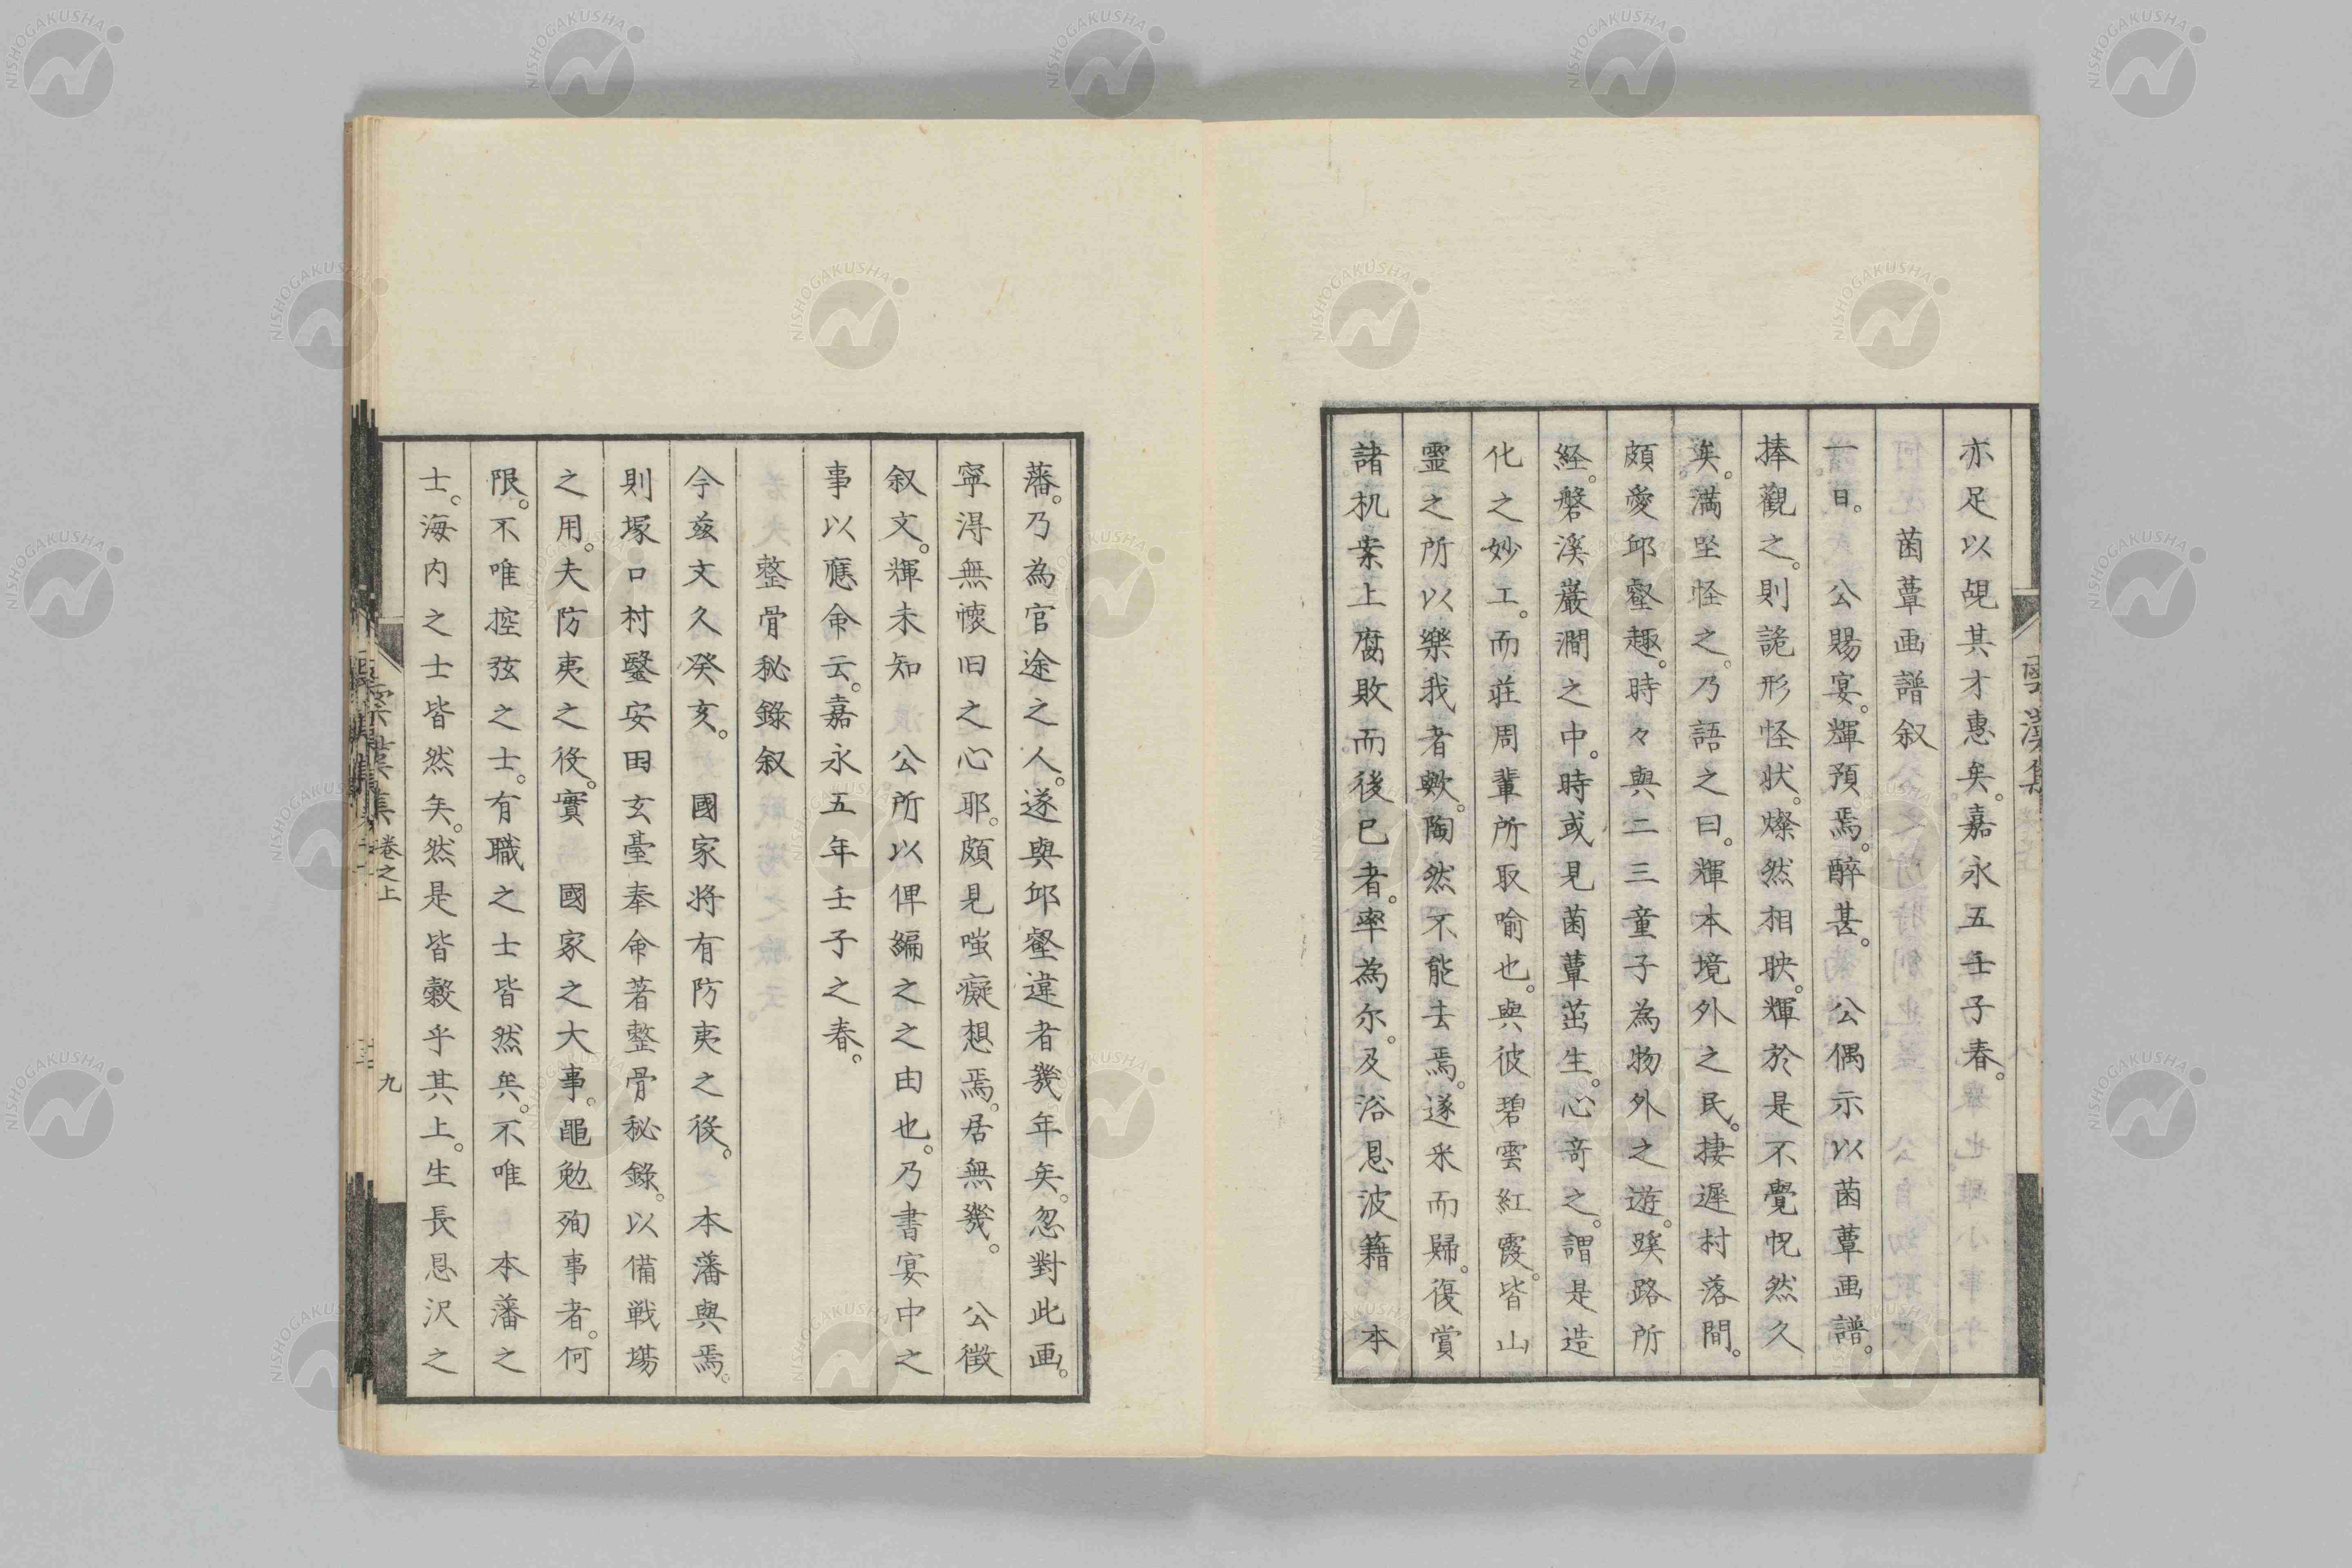 亦足以覘其才惠矣。嘉永五壬子春。
菌蕈画譜叙
一日。　公賜宴。輝預焉。醉甚。　公偶示以菌蕈画譜。
捧觀之。則詭形怪状。燦然相映。輝於是不覺怳然久
矣。満坐怪之。乃語之曰。輝本境外之民。捿遲村落間。
頗愛邱壑趣。時々與二三童子為物外之遊。蹊路所
経。磐溪巖澗之中。時或見菌蕈茁生。心竒之。謂是造
化之妙工。而莊周輩所取喻也。與彼碧雲紅霞。皆山
靈之所以樂我者歟。陶然不能去焉。遂采而歸。復賞
諸机案上腐敗而後已者。率為尓。及浴恩波籍　本
藩。乃為官途之人。遂與邱壑違者幾年矣。忽對此画。
寧淂無懷旧之心耶。頗見嗤癡想焉。居無幾。　公徴
叙文。輝未知　公所以俾編之之由也。乃書宴中之
事以應命云。嘉永五年壬子之春。
整骨秘錄叙
今茲文久癸亥。　國家将有防夷之役。　本藩與焉。
則塚口村毉安田玄臺奉命著整骨秘錄。以備戦塲
之用。夫防夷之役。實　國家之大事。黽勉殉事者。何
限。不唯控弦之士。有職之士皆然矣。不唯　本藩之
士。海内之士皆然矣。然是皆糓乎其上。生長恩沢之
卷之上
九
NISHOGAKUSHA